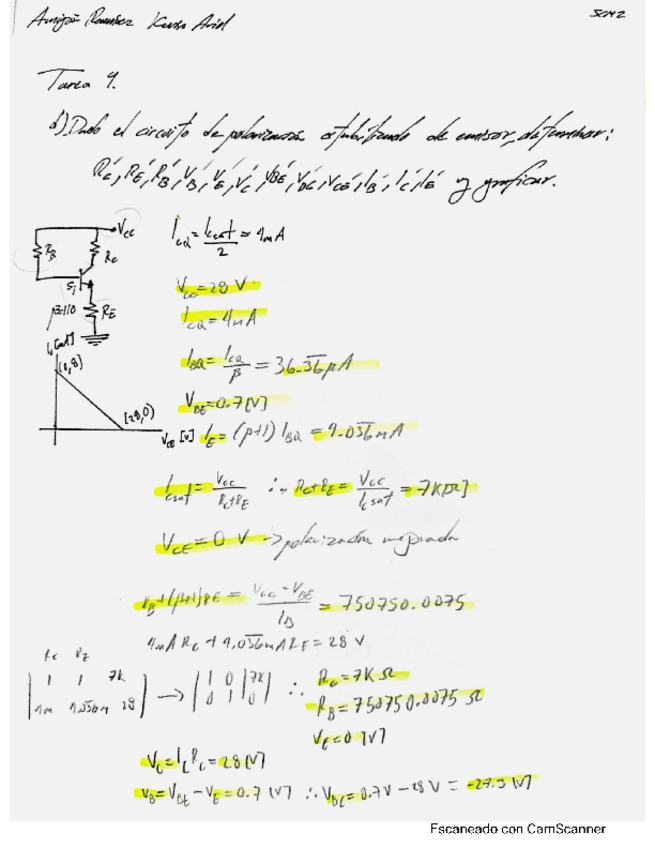 Kevin Ariel
Tarea 4.
d) Dado el circuito de polarización estabilizado de emisor, determinar:
RC, RE, RB, VB, VE, VC, VBE, VBC, VCE, IB, IC, IE y graficar.
VCC
RB
RC
Si
β=110
RE
ICQ = ICsat/2 = 4mA
VCC = 28 V
ICQ = 4mA
IBQ = ICQ/β = 36.36 μA
VBE = 0.7 [V]
IE = (β+1) IBQ = 4.036 mA
(0,8)
(28,0)
VCE [V]
ICsat = VCC/RC+RE ∴ RC+RE = VCC/ICsat = 7K[Ω]
VCE = 0 V -> polarización mejorada
RB+(β+1)RE = VCC-VBE/IB = 750750.0075
4mA RC + 4.036mA RE = 28 V
RC RE
1 1 7K
4m 4.036m 28
→
1 0 7K
0 1 0
∴ RC = 7K Ω
RB = 750750.0075 Ω
VE = 0 [V]
VC = IC RC = 28 [V]
VB = VBE - VE = 0.7 [V] ∴ VBC = 0.7V - 28 V = -27.3 [V]
Escaneado con CamScanner